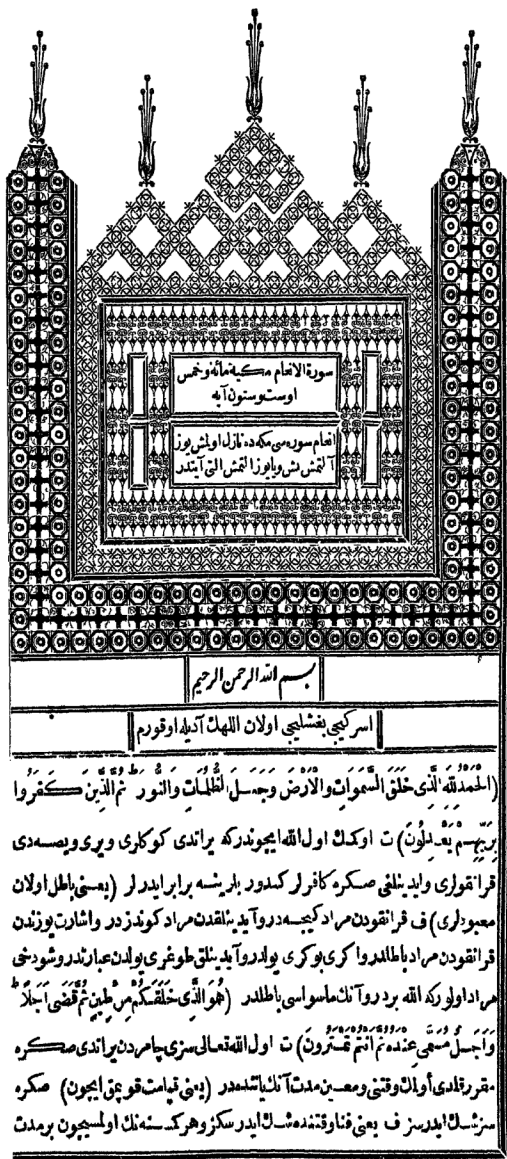 سورة الانعام مكية مائة وخمس
اوست وستون آيه
انعام سوره سى مكه ده نازل اولمش يوز
آلتمش بش ويا يوز التمش التى آيتدر
بسم الله الرحمن الرحيم
اسركيجى بغشليجى اولان اللهك آديله اوقورم
(اَلْحَمْدُ لِلّٰهِ الَّذِى خَلَقَ السَّمٰوَاتِ وَالْاَرْضَ وَجَعَلَ الظُّلُمَاتِ وَالنُّورَ ط ثُمَّ الَّذِينَ كَفَرُوا
بِرَبِّهِمْ يَعْدِلُونَ) ت اوكمك اول الله ايچوندركه يراتدى كوكلرى ويرى ويصه دى
قراتقولرى وايدينلغى صكره كافرلر كندور باريشه برابر ايدرلر (يعنى باطل اولان
معبودلرى) ف قرانقودن مراد كيجه در وآيدينلقدن مراد كوندزدر واشارت يوزندن
قرانقودن مراد باطلدر واكرى بوكرى يولدر وآيدينلق طوغرى يولدن عبارتدر وشودخى
مراد اولوركه الله بردر وآنك ماسواسى باطلدر (هُوَ الَّذِى خَلَقَكُمْ مِنْ طِينٍ ثُمَّ قَضَى اَجَلًا ط
وَاَجَلٌ مُسَمًّى عِنْدَهُ ثُمَّ اَنْتُمْ تَمْتَرُونَ) ت اول الله تعالى سزى چامردن يراتدى صكره
مقرر قلدى أولمك وقتنى ومعين مدت آنك ياننده در (يعنى قيامت قوپمق ايچون) صكره
سز شك ايدرسز ف يعنى فنا وقتنده شك ايدرسكز وهر كمسنه نك اولمسيچون بر مدت